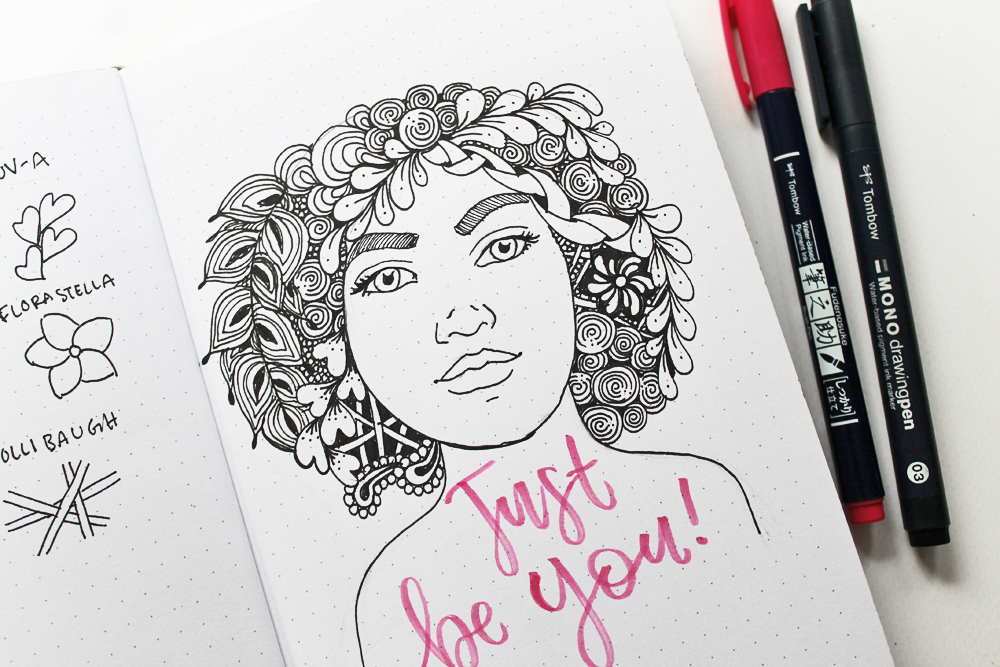 UV-A
FLORA STELLA
OLLI BAUGH
Just
be you!
Tombow
Water-based
Pigment Ink
筆之助
Fudenosuke
しっかり
仕立て
Tombow
MONO drawingpen
Water-based pigment ink marker
03